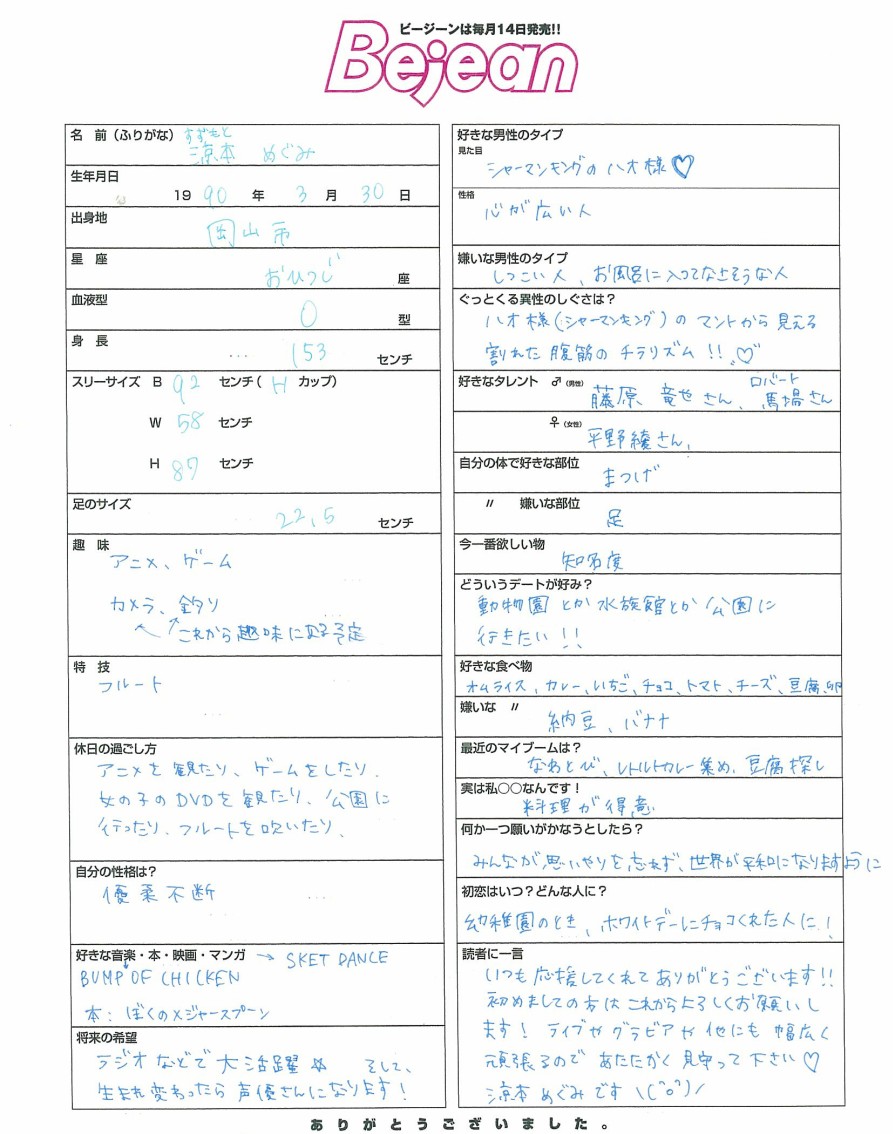 ビージーンは毎月14日発売!!
Bejean
名 前（ふりがな） すずもと
涼本 めぐみ
生年月日
19 90 年 3 月 30 日
出身地
岡山市
星 座
おひつじ 座
血液型
O 型
身 長
153 センチ
スリーサイズ B 92 センチ( H カップ)
W 58 センチ
H 87 センチ
足のサイズ
22.5 センチ
趣 味
アニメ、ゲーム
カメラ、釣り
これから趣味になる予定
特 技
フルート
休日の過ごし方
アニメを観たり、ゲームをしたり、
女の子のDVDを観たり、公園に
行ったり、フルートを吹いたり、
自分の性格は?
優柔不断
好きな音楽・本・映画・マンガ → SKET DANCE
BUMP OF CHICKEN
本：ぼくのメジャースプーン
将来の希望
ラジオなどで大活躍☆ そして、
生まれ変わったら声優さんになります!
好きな男性のタイプ
見た目
シャーマンキングのハオ様♡
性格
心が広い人
嫌いな男性のタイプ
しつこい人、お風呂に入ってなさそうな人
ぐっとくる異性のしぐさは?
ハオ様(シャーマンキング)のマントから見える
割れた腹筋のチラリズム!!♡
好きなタレント ♂(男性) 藤原竜也さん、ロバート馬場さん
♀(女性) 平野綾さん、
自分の体で好きな部位
まつげ
〃 嫌いな部位
足
今一番欲しい物
知名度
どういうデートが好み?
動物園とか水族館とか公園に
行きたい!!
好きな食べ物
オムライス、カレー、いちご、チョコ、トマト、チーズ、豆腐、卵
嫌いな 〃
納豆、バナナ
最近のマイブームは?
なわとび、レトルトカレー集め、豆腐探し
実は私〇〇なんです!
料理が得意
何か一つ願いがかなうとしたら?
みんなが思いやりを忘れず、世界が平和になりますように
初恋はいつ?どんな人に?
幼稚園のとき、ホワイトデーにチョコくれた人に!
読者に一言
いつも応援してくれてありがとうございます!!
初めましての方はこれからよろしくお願いし
ます! ライブやグラビアや他にも幅広く
頑張るので あたたかく見守って下さい♡
涼本めぐみです \(^o^)/
ありがとうございました。